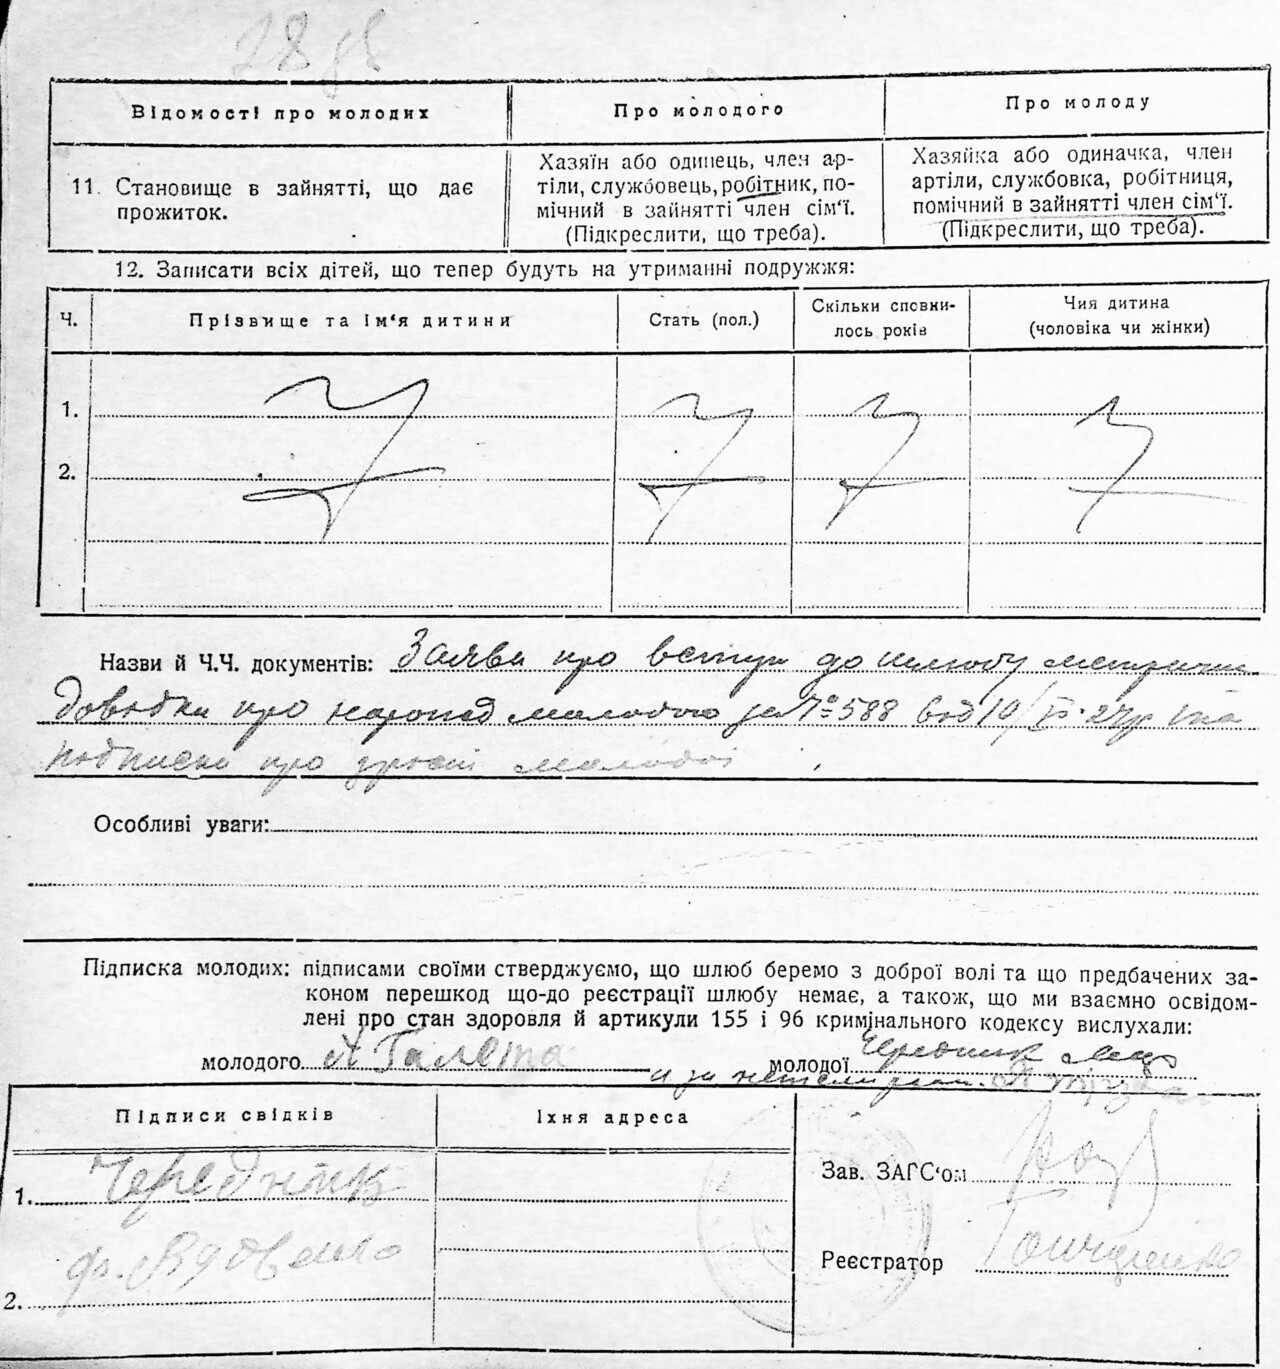 28
Відомості про молодих
Про молодого
Про молоду
11. Становище в зайнятті, що дає прожиток.
Хазяїн або одинець, член ар-
тілі, службовець, робітник, по-
мічний в зайнятті член сім'ї.
(Підкреслити, що треба).
Хазяйка або одиначка, член
артіли, службовка, робітниця,
помічний в зайнятті член сім'ї.
(Підкреслити, що треба).
12. Записати всіх дітей, що тепер будуть на утриманні подружжя:
Ч.
Прізвище та ім'я дитини
Стать (пол.)
Скільки сповни-
лось років
Чия дитина
(чоловіка чи жінки)
1.
2.
Назви й Ч.Ч. документів: Заяви про вступ до шлюбу метричні
довідки про народ молодого за № 588 від 10/ 27р та
підписка про молодої
Особливі уваги:
Підписка молодих: підписами своїми стверджуємо, що шлюб беремо з доброї волі та що предбачених за-
коном перешкод що-до реєстрації шлюбу немає, а також, що ми взаємно освідом-
лені про стан здоровля й артикули 155 і 96 кримінального кодексу вислухали:
молодого А Галета
молодої Чередник
и за
Підписи свідків
Їхня адреса
1. Чередник
Вдовенко
2.
Зав. ЗАГС'ом
Реєстратор Гончаренко